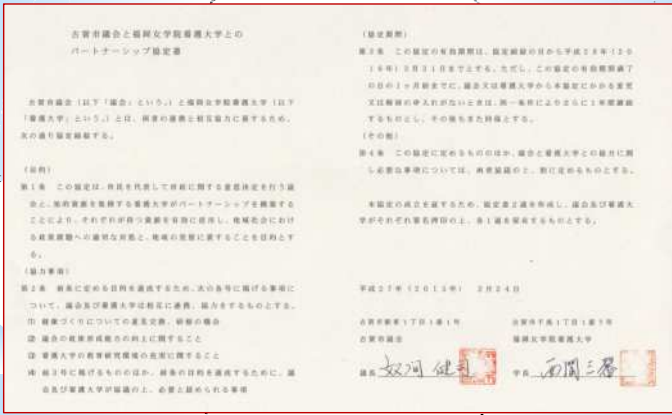 古賀市議会と福岡女学院看護大学との
パートナーシップ協定書
古賀市議会（以下「議会」という。）と福岡女学院看護大学（以下
「看護大学」という。）とは、両者の連携と相互協力に資するため、
次の通り協定締結する。
（目的）
第1条　この協定は、市民を代表して市政に関する意思決定を行う議
会と、知的資源を集積する看護大学がパートナーシップを構築する
ことにより、それぞれが持つ資源を有効に活用し、地域社会におけ
る政策課題への適切な対処と、地域の発展に資することを目的とす
る。
（協力事項）
第2条　前条に定める目的を達成するため、次の各号に掲げる事項に
ついて、議会及び看護大学は相互に連携、協力をするものとする。
⑴ 健康づくりについての意見交換、研修の機会
⑵ 議会の政策形成能力の向上に関すること
⑶ 看護大学の教育研究環境の充実に関すること
⑷ 前3号に掲げるもののほか、前条の目的を達成するために、議
会及び看護大学が協議の上、必要と認められる事項
（協定期間）
第3条　この協定の有効期間は、協定締結の日から平成28年（20
16年）3月31日までとする。ただし、この協定の有効期間満了
の日の1ヶ月前までに、議会又は看護大学から本協定にかかる変更
又は解除の申入れがないときは、同一条件によりさらに1年間継続
するものとし、その後もまた同様とする。
（その他）
第4条　この協定に定めるもののほか、議会と看護大学との協力に関
し必要な事項については、両者協議の上、別に定めるものとする。
本協定の成立を証するため、協定書2通を作成し、議会及び看護大
学がそれぞれ署名押印の上、各1通を保有するものとする。
平成27年（2015年）　2月24日
古賀市駅東1丁目1番1号　古賀市千鳥1丁目1番7号
古賀市議会　福岡女学院看護大学
議長 奴間 健司　学長 西間 三馨